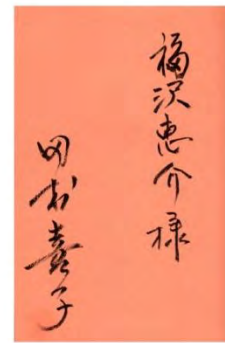 福沢恵介様
田村喜子